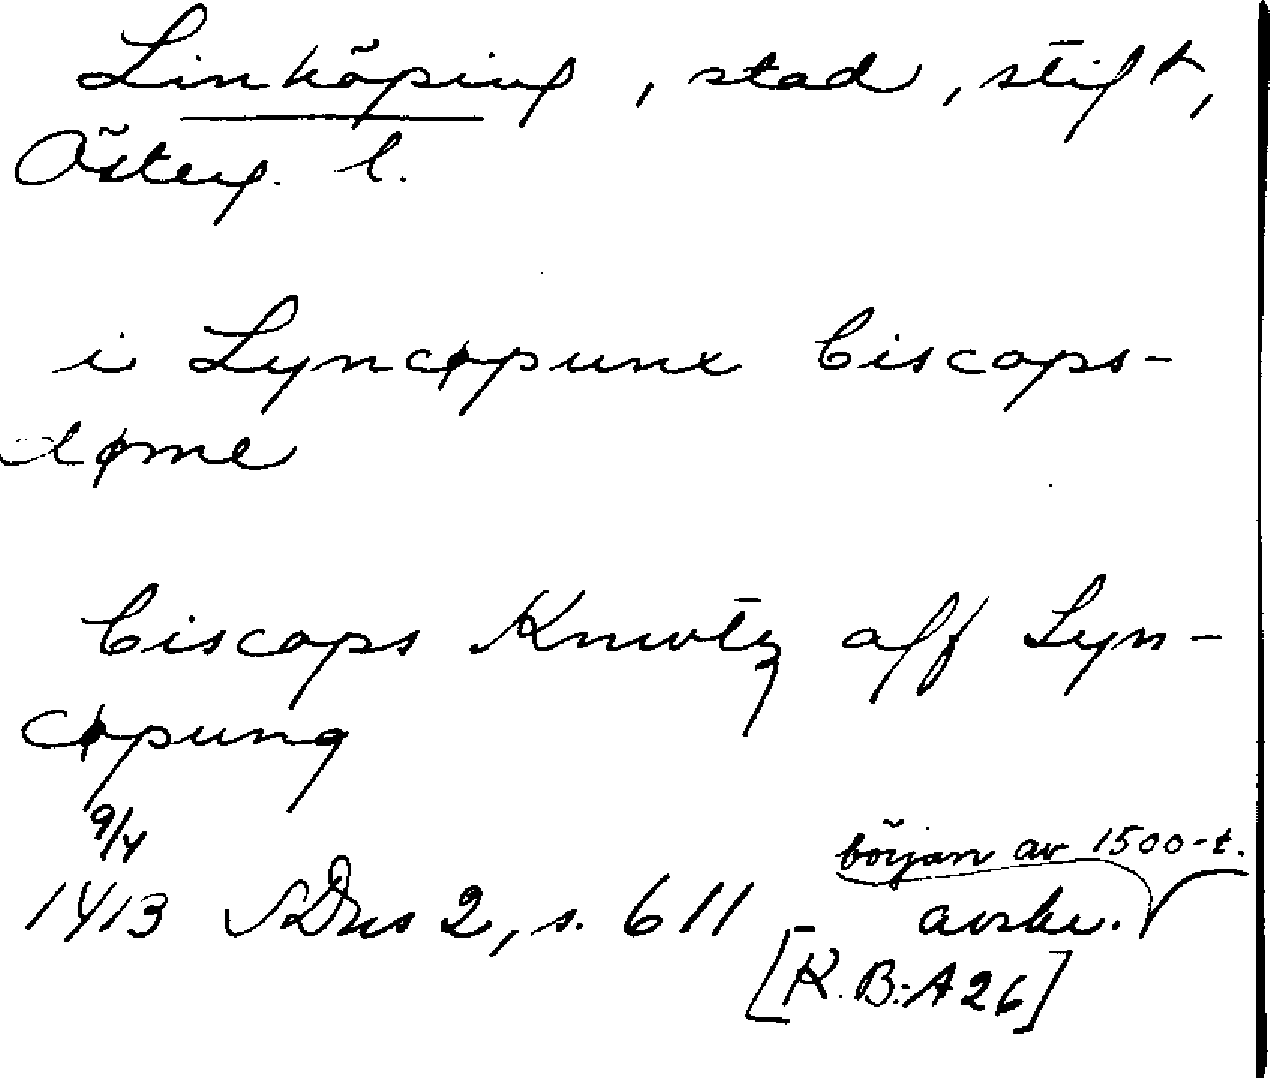 Linköping, stad, stift,
Österg. l.
i Lyncøpunx biscops-
døme
biscops Knwtz aff Lyn-
cøpung
9/4
1413 SDns 2, s. 611 avskr.
början av 1500-t.
[K. B:A 26]